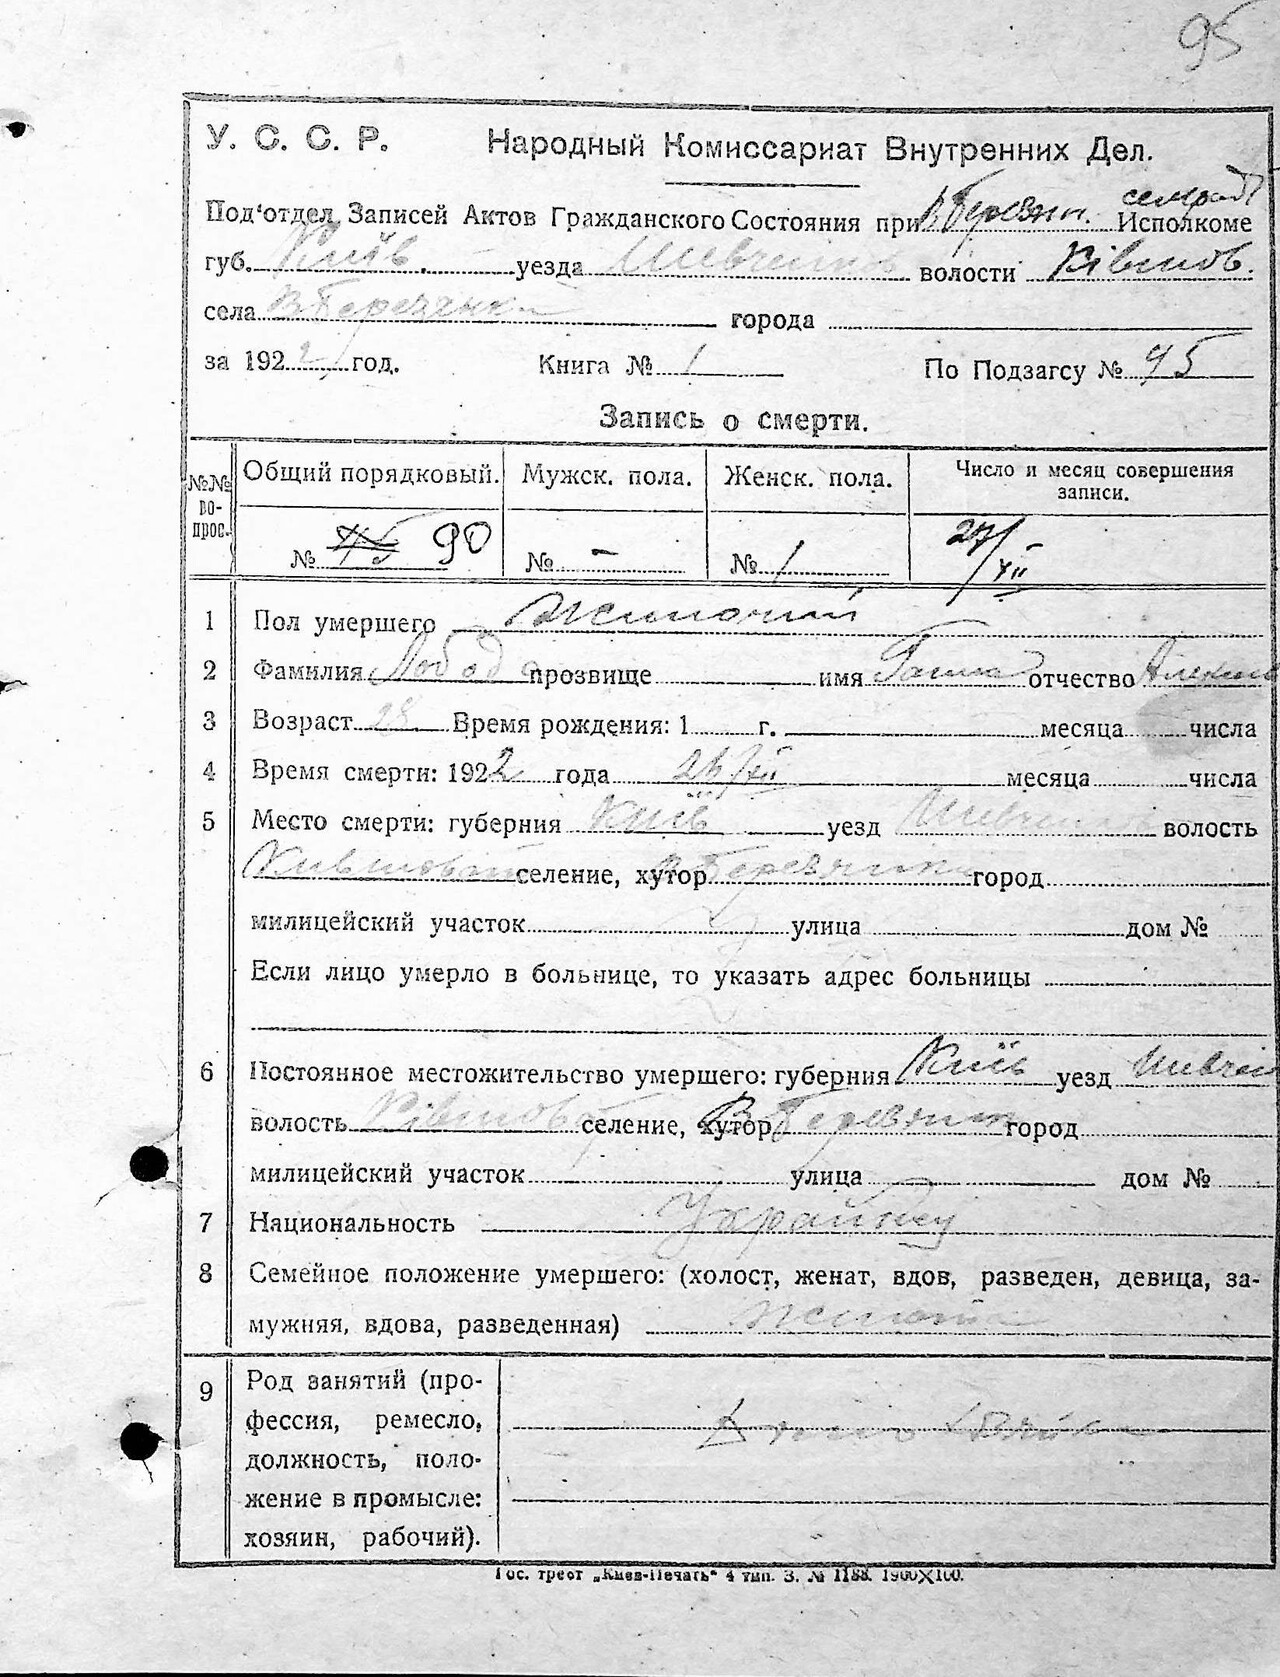 95
У. С. С. Р. Народный Комиссариат Внутренних Дел.
Под'отдел Записей Актов Гражданского Состояния при В Березян. Исполкоме
губ. Київ. уезда Шевченков волости Ківшов.
села В Березянка города
за 1922 год. Книга № 1 По Подзагсу № 95
Запись о смерти.
№№ во-прос. Общий порядковый. Мужск. пола. Женск. пола. Число и месяц совершения записи.
№ 90 № – № 1 27/XII
1 Пол умершего Жиночий
2 Фамилия Лобода прозвище имя Ганна отчество
3 Возраст 28 Время рождения: 1 г. месяца числа
4 Время смерти: 1922 года месяца числа
5 Место смерти: губерния Київ уезд Шевченков волость
селение, хутор В Березянка город
милицейский участок улица дом №
Если лицо умерло в больнице, то указать адрес больницы
6 Постоянное местожительство умершего: губерния Київ уезд Шевчен
волость селение, хутор В Березянк город
милицейский участок улица дом №
7 Национальность
8 Семейное положение умершего: (холост, женат, вдов, разведен, девица, за-
мужняя, вдова, разведенная)
9 Род занятий (про-
фессия, ремесло,
должность, поло-
жение в промысле:
хозяин, рабочий).
Гос. трест „Киев-Печать“ 4 тип. З. № 1188. 1900×100.